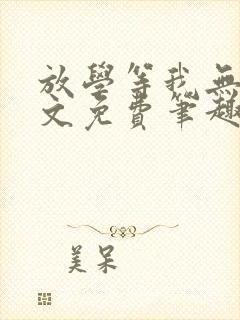 放學等我無
文免費筆趣
美呆